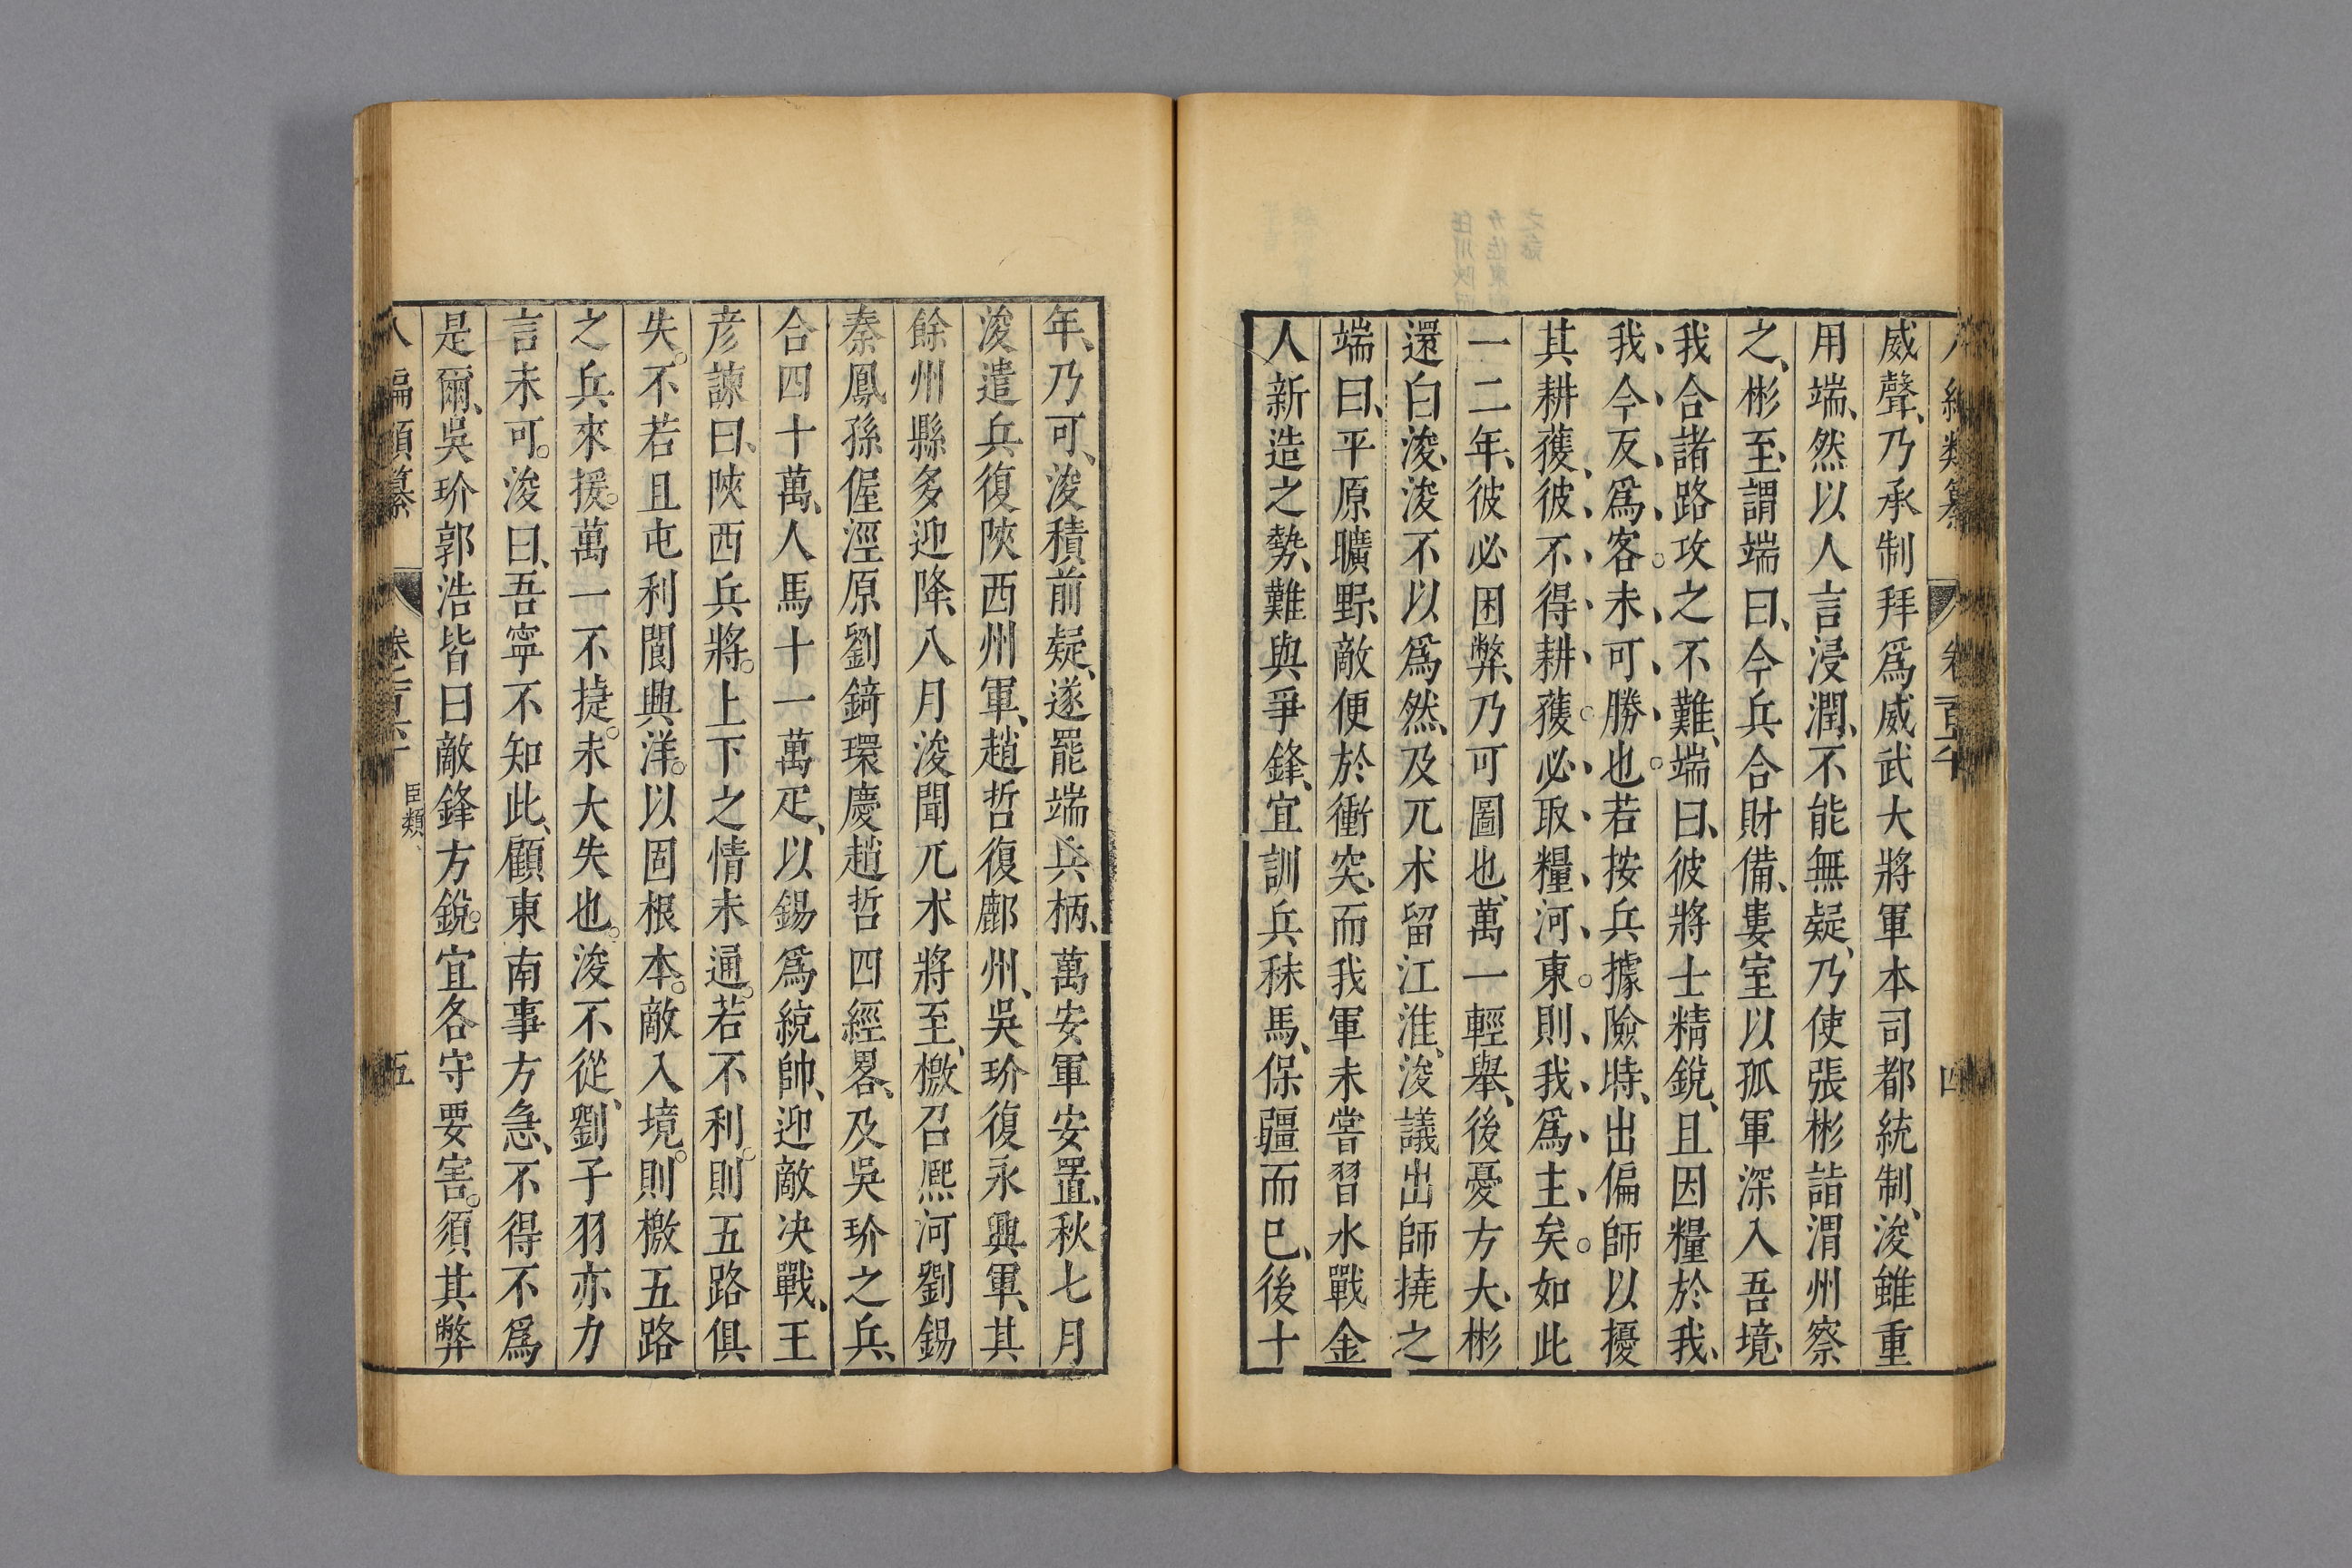 威聲、乃承制拜爲威武大將軍本司都統制、浚雖重
用端、然以人言浸潤、不能無疑、乃使張彬詣渭州察
之、彬至、謂端曰、今兵合財備、婁室以孤軍深入吾境、
我合諸路攻之不難、端曰、彼將士精銳、且因糧於我、
我今反爲客。未可勝也。若按兵據險、時出偏師以擾
其耕穫、彼不得耕穫。必取糧河東。則我爲主矣。如此
一二年、彼必困弊、乃可圖也、萬一輕舉、後憂方大、彬
還白浚、浚不以爲然、及兀术留江淮、浚議出師撓之
端曰、平原曠野、敵便於衝突、而我軍未嘗習水戰金
人新造之勢、難與爭鋒、宜訓兵秣馬、保疆而已、後十
年、乃可、浚積前疑、遂罷端兵柄、萬安軍安置、秋七月
浚遣兵復陝西州軍、趙哲復鄜州、吳玠復永興軍、其
餘州縣多迎降、八月浚聞兀术將至、檄召熈河劉錫
秦鳳孫偓涇原劉錡環慶趙哲四經畧、及吳玠之兵、
合四十萬、人馬十一萬疋、以錫爲統帥、迎敵决戰、王
彦諫曰、陝西兵將。上下之情未通。若不利。則五路俱
失。不若且屯利閬興洋。以固根本。敵入境。則檄五路
之兵來援。萬一不捷。未大失也。浚不從、劉子羽亦力
言未可。浚曰、吾寧不知此、顧東南事方急、不得不爲
是爾、吳玠郭浩皆曰敵鋒方銳。宜各守要害。須其弊
臣類、
五